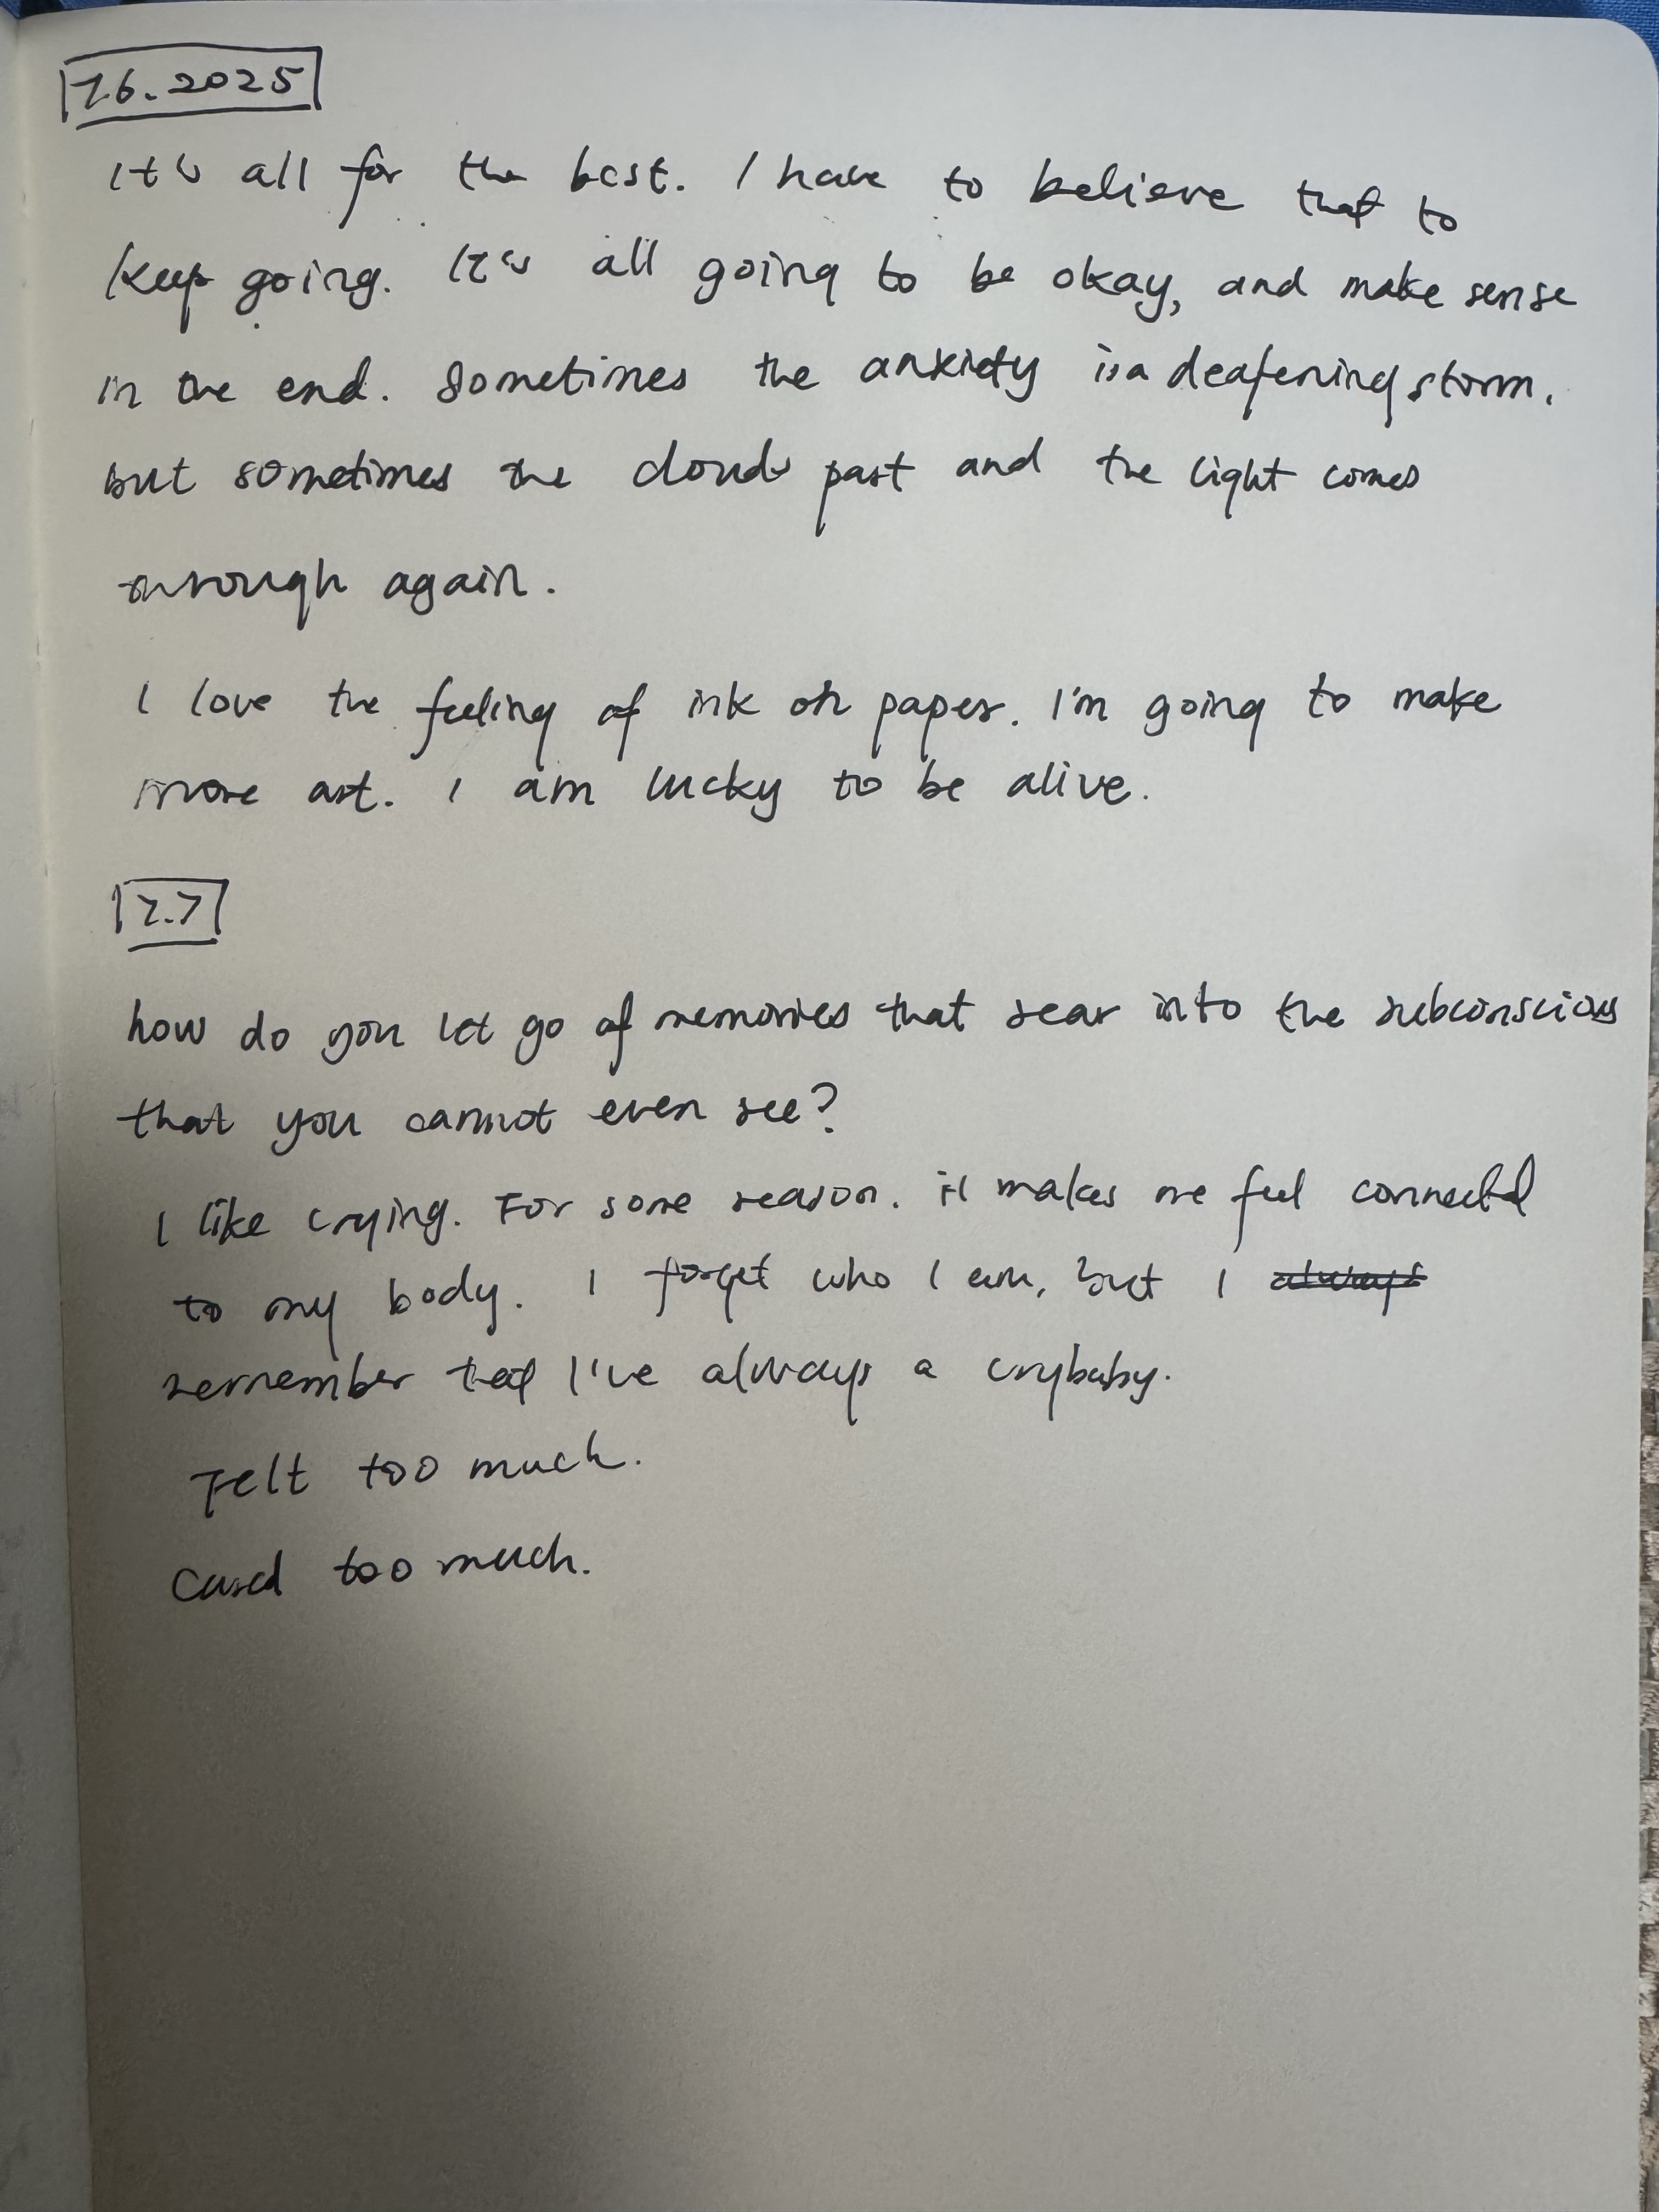 7.6.2025
It's all for the best. I have to believe that to
keep going. It's all going to be okay, and make sense
in the end. Sometimes the anxiety is a deafening storm.
but sometimes the clouds part and the light comes
through again.
I love the feeling of ink on paper. I'm going to make
more art. I am lucky to be alive.
7.7
how do you let go of memories that sear into the subconscious
that you cannot even see?
I like crying. For some reason. it makes me feel connected
to my body. I forget who I am, but I always
remember that I've always a crybaby.
Felt too much.
Cared too much.